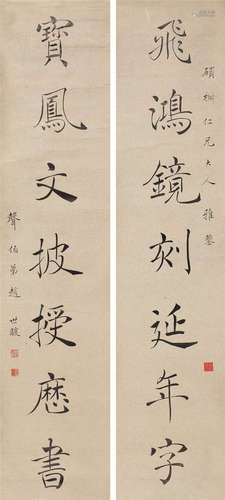 飛鴻鏡刻延年字
碩樹仁兄大人雅鑒
寶鳳文披授歷書
聲伯弟趙世駿